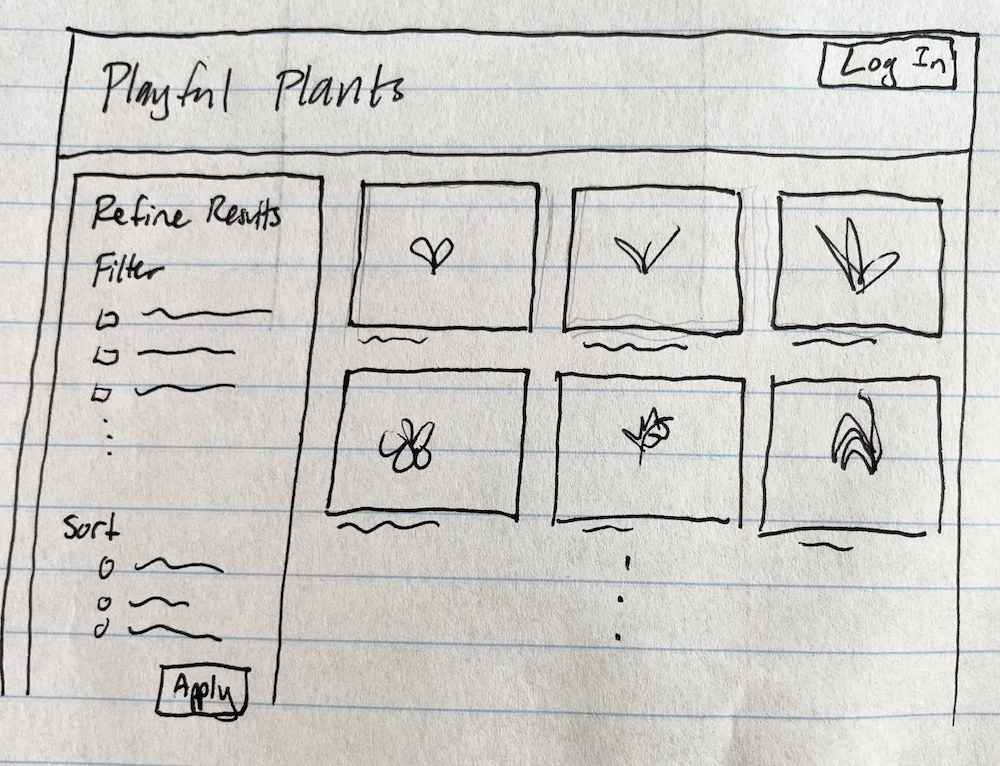 Playful Plants
Log In
Refine Results
Filter
Sort
Apply